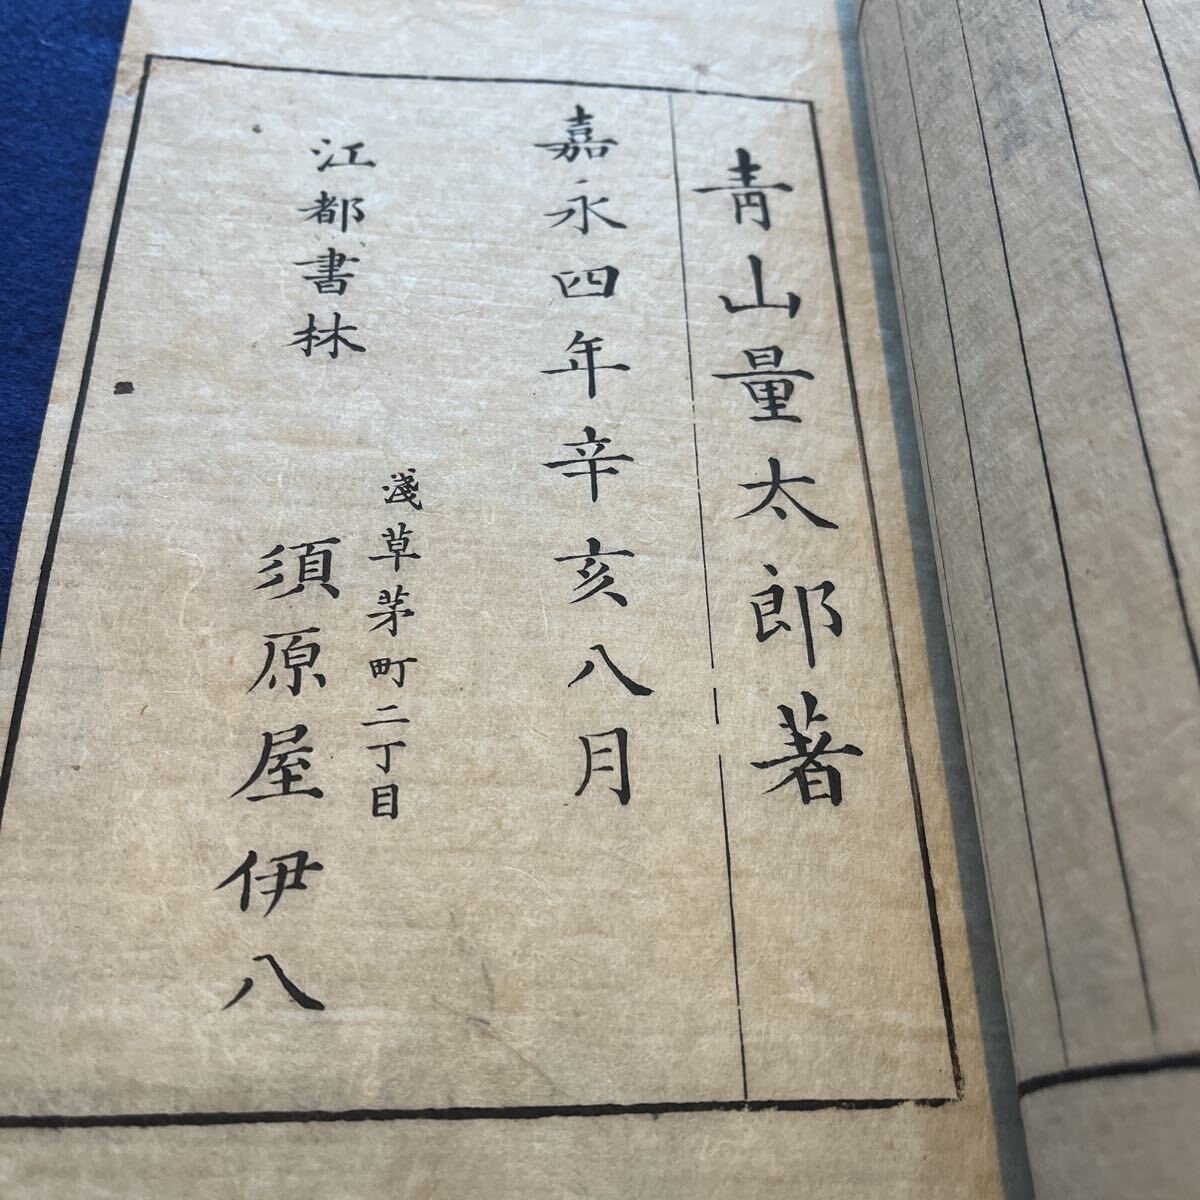 靑山量太郎著
嘉永四年辛亥八月
江都書林
淺草茅町二丁目
須原屋伊八